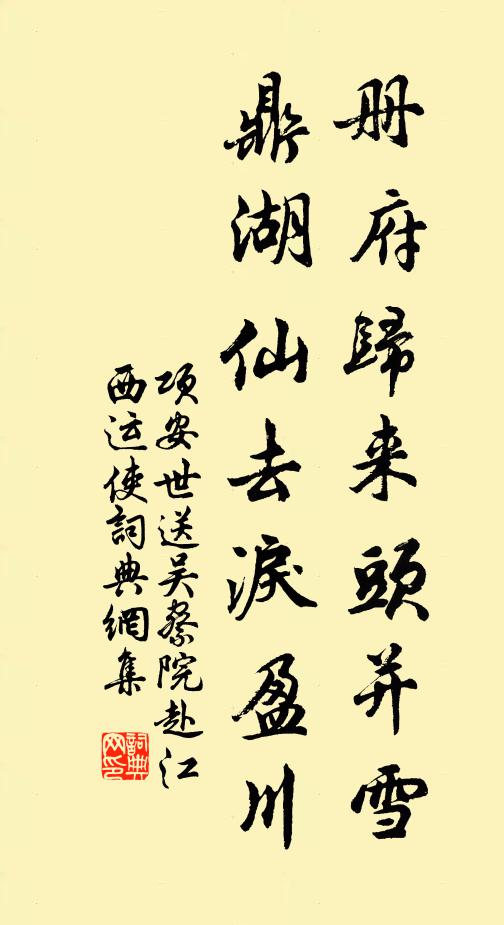 册府歸来頭并雪
鼎湖仙去淚盈川
项安世送吴察院赴江
西运使詞典網集
詞典网印